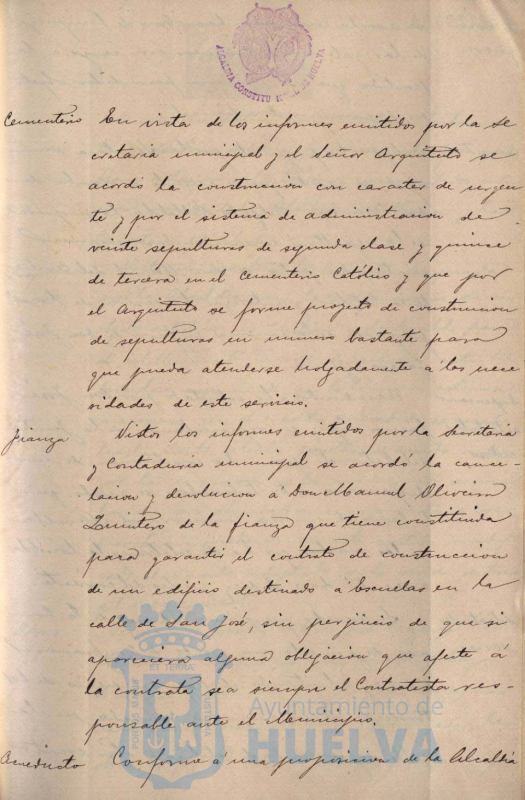 ALCALDIA CONSTITU DE HUELVA
Cementerio En vista de los informes emitidos por la Se
cretaria municipal y el Señor Arquitecto se
acordó la construccion con caracter de urgen
te y por el sistema de administracion de
veinte sepulturas de segunda clase y quince
de tercera en el Cementerio Católico y que por
el Arquitecto se forme proyecto de construccion
de sepulturas en numero bastante para
que pueda atenderse holgadamente á las nece
sidades de este servicio.
Fianza Vistos los informes emitidos por la Secretaria
y Contaduria municipal se acordó la cance-
lacion y devolucion á Don Manuel Oliveira
Quintero de la fianza que tiene constituida
para garantir el contrato de construccion
de un edificio destinado á Escuelas en la
calle de San José, sin perjuicio de que si
apareciera alguna obligacion que afecte á
la contrata sea siempre el Contratista res-
ponsable ante el Municipio.
Acueducto Conforme á una proposicion de la Alcaldia
Ayuntamiento de
HUELVA